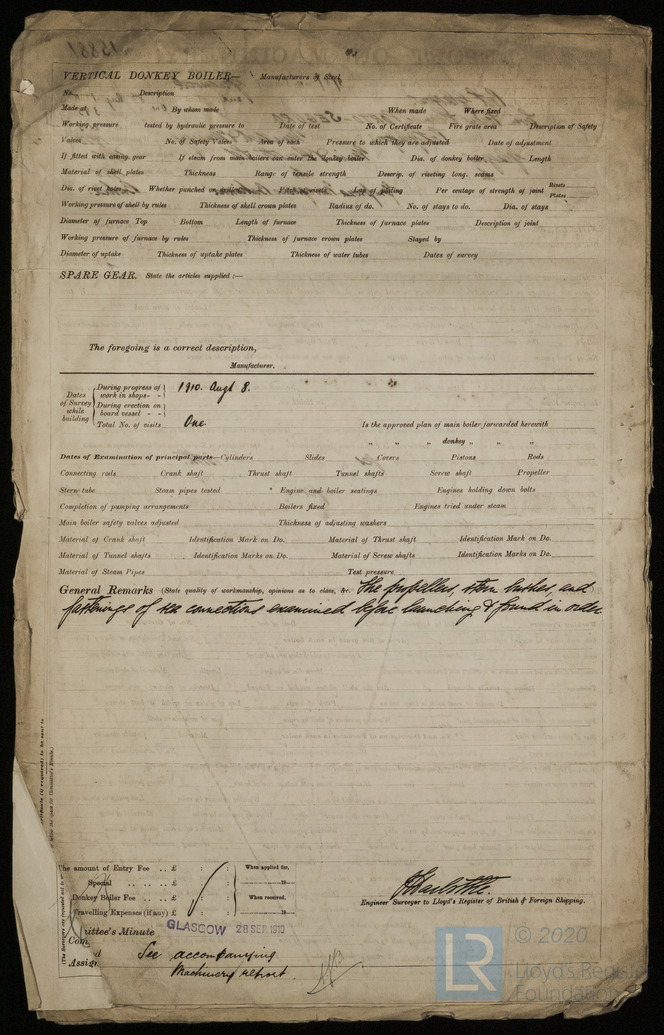 VERTICAL DONKEY BOILER— Manufacturers of Steel
No. Description
Made at By whom made When made Where fixed
Working pressure tested by hydraulic pressure to Date of test No. of Certificate Fire grate area Description of Safety
Valves No. of Safety Valves Area of each Pressure to which they are adjusted Date of adjustment
If fitted with easing gear If steam from main boilers can enter the donkey boiler Dia. of donkey boiler Length
Material of shell plates Thickness Range of tensile strength Descrip. of riveting long. seams
Dia. of rivet holes Whether punched or drilled Pitch of rivets Lap of plating Per centage of strength of joint Rivets Plates
Working pressure of shell by rules Thickness of shell crown plates Radius of do. No. of stays to do. Dia. of stays
Diameter of furnace Top Bottom Length of furnace Thickness of furnace plates Description of joint
Working pressure of furnace by rules Thickness of furnace crown plates Stayed by
Diameter of uptake Thickness of uptake plates Thickness of water tubes Dates of survey
SPARE GEAR. State the articles supplied:—
The foregoing is a correct description,
Manufacturer.
Dates of Survey while building
During progress of work in shops - - 1910. Augt 8.
During erection on board vessel - -
Total No. of visits One. Is the approved plan of main boiler forwarded herewith
" " donkey " " "
Dates of Examination of principal parts—Cylinders Slides Covers Pistons Rods
Connecting rods Crank shaft Thrust shaft Tunnel shafts Screw shaft Propeller
Stern tube Steam pipes tested Engine and boiler seatings Engines holding down bolts
Completion of pumping arrangements Boilers fixed Engines tried under steam
Main boiler safety valves adjusted Thickness of adjusting washers
Material of Crank shaft Identification Mark on Do. Material of Thrust shaft Identification Mark on Do.
Material of Tunnel shafts Identification Marks on Do. Material of Screw shafts Identification Marks on Do.
Material of Steam Pipes Test pressure
General Remarks (State quality of workmanship, opinions as to class, &c. The propellers, stern bushes, and
fastenings of sea connections examined before launching & found in order
The amount of Entry Fee .. £ : : When applied for,
Special .. .. .. £ : : 19
Donkey Boiler Fee .. .. £ : : When received,
Travelling Expenses (if any) £ : : 19
Engineer Surveyor to Lloyd's Register of British & Foreign Shipping.
GLASGOW 28 SEP. 1910
Com ittee's Minute
Assig d See accompanying
Machinery report.
LR © 2020
Lloyd's Register
Foundation